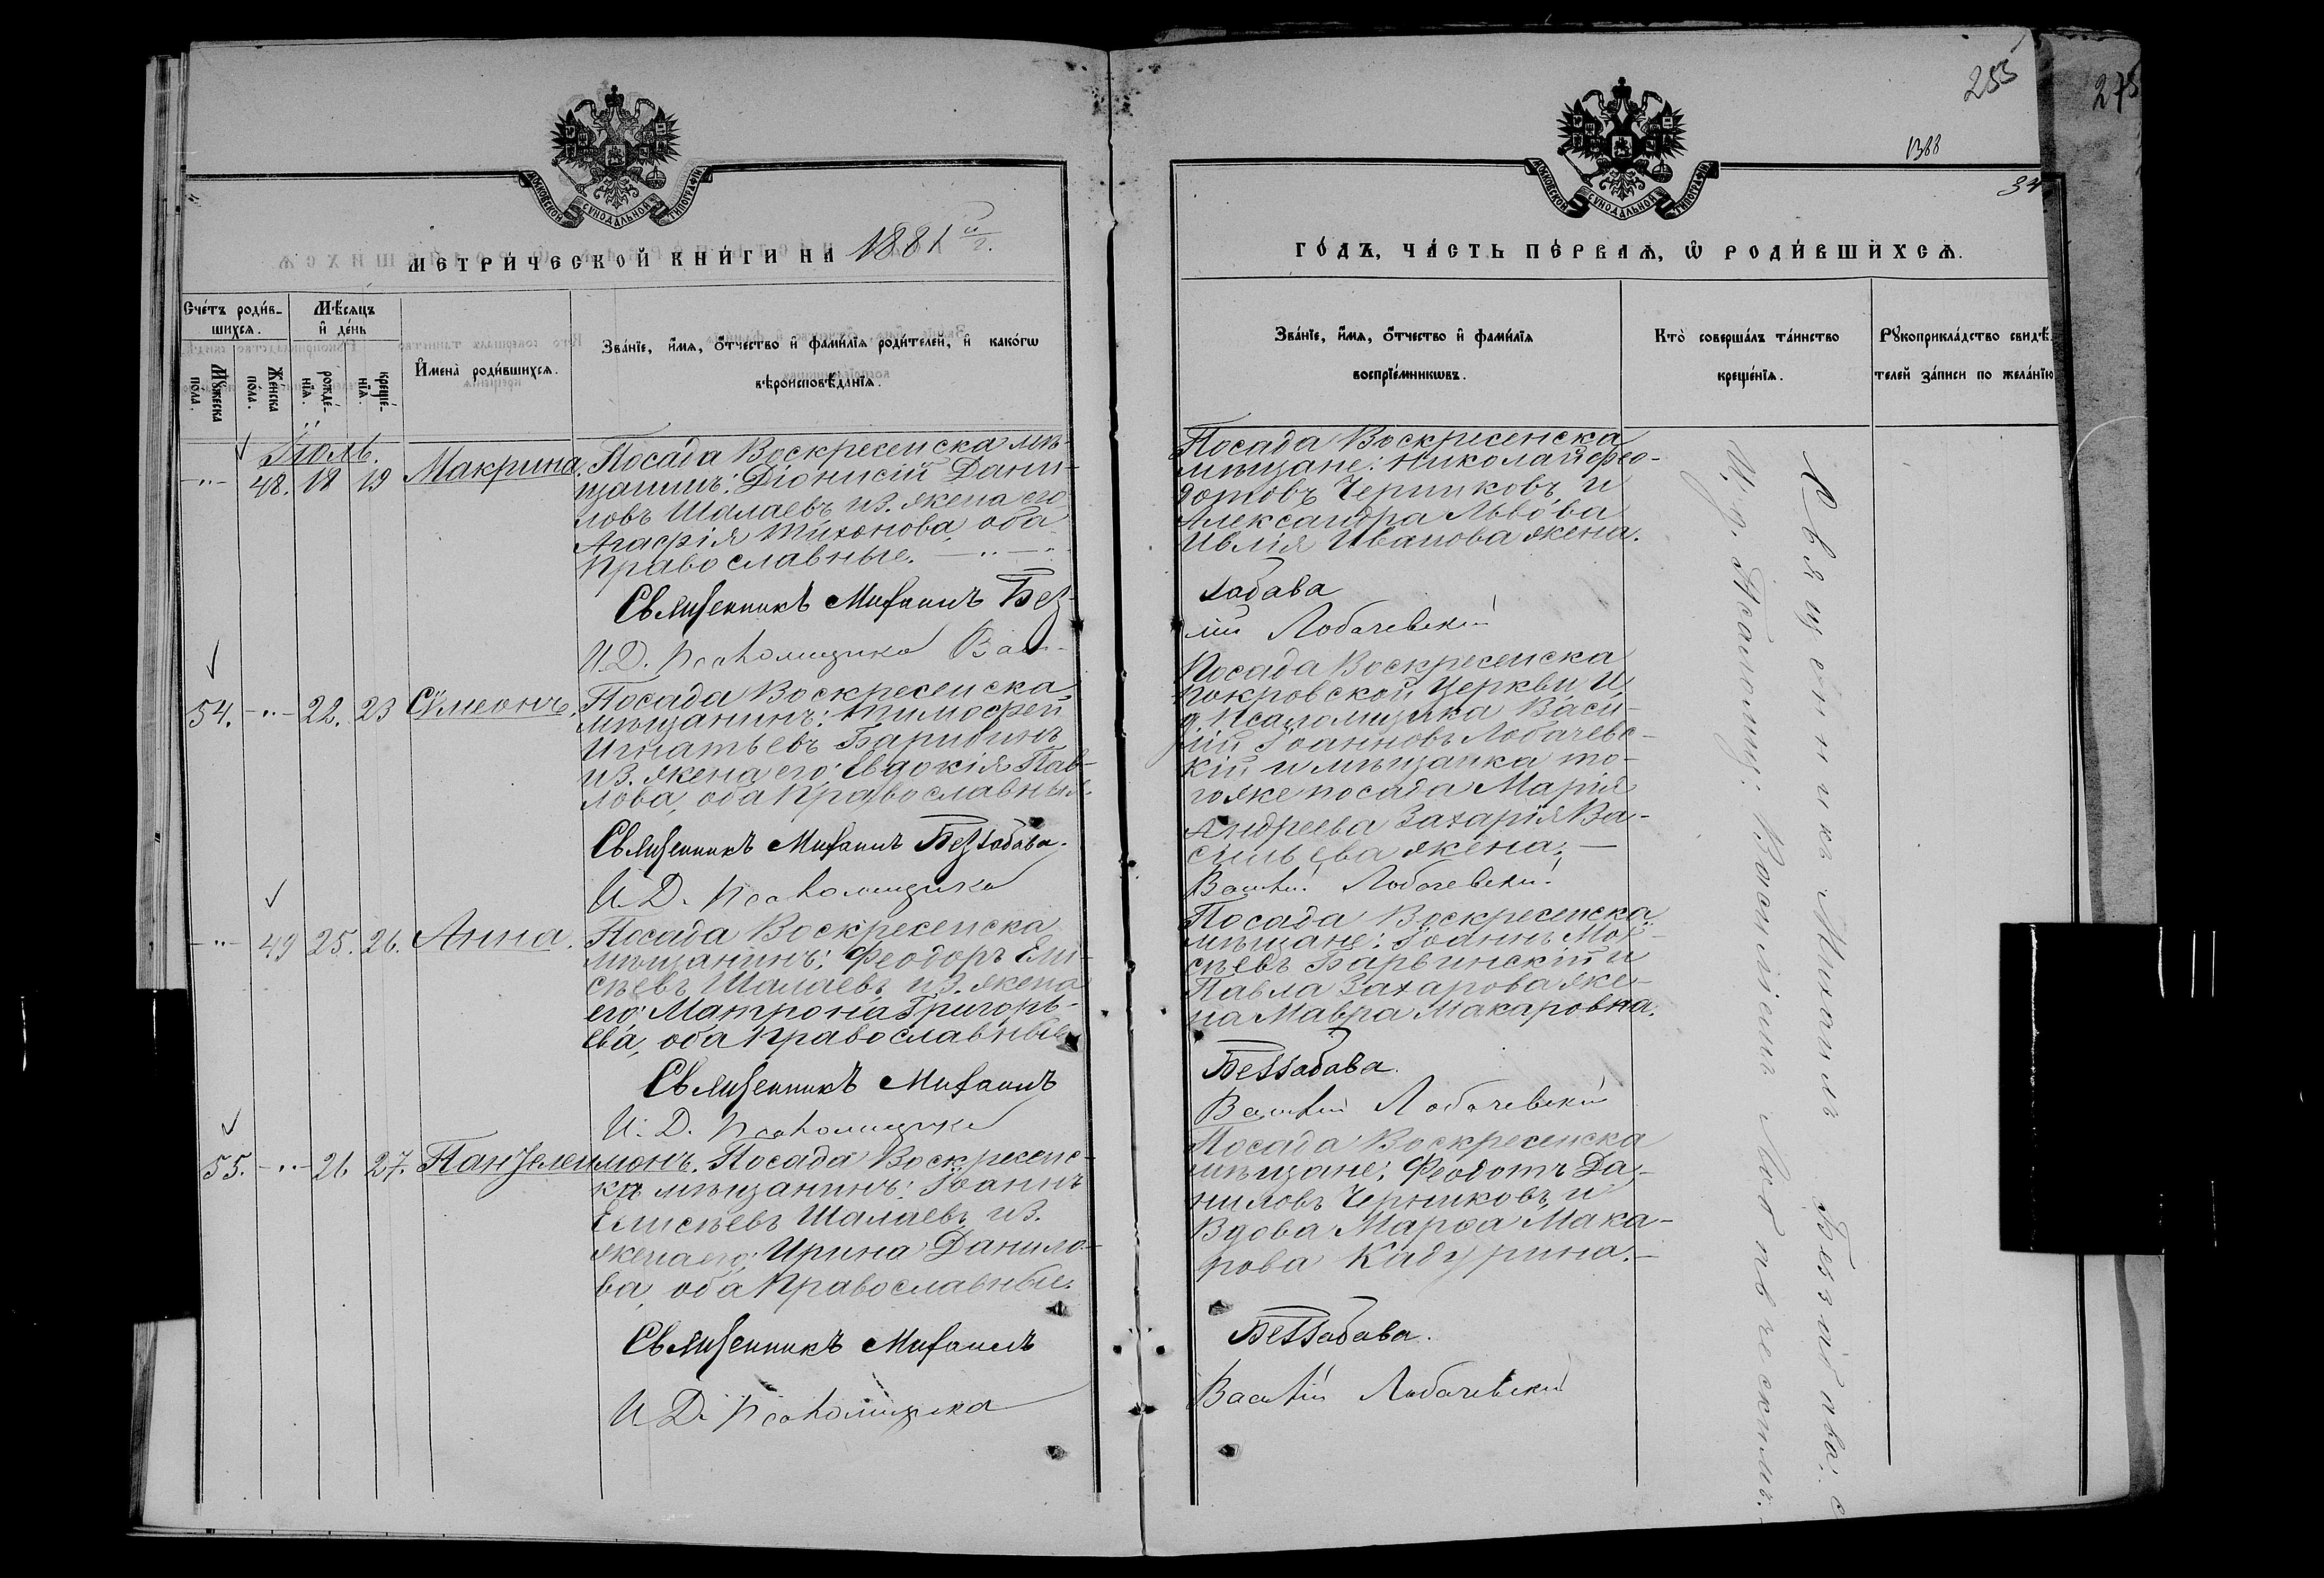 255
275
1388
34
МОСКОВСКОЙ СѴНОДАЛЬНОЙ ТИПОГРАФІИ
МОСКОВСКОЙ СѴНОДАЛЬНОЙ ТИПОГРАФІИ
МЕТРИ́ЧЕСКОЙ КНИ́ГИ НА 1881 й г.
ГО́ДЪ, ЧА́СТЬ ПЕ́РВАѦ, Ѡ РОДИ́ВШИХСѦ.
Сче́тъ роди́в-
шихсѧ.
Мꙋ́жеска по́ла.
Же́нска по́ла.
Мѣ́сѧцъ
и҆ де́нь
рожде́-нїѧ.
креще́-нїѧ.
И҆мена̀ роди́вшихсѧ.
Зва́нїе, и҆́мѧ, ѻ҆́тчество и҆ фами́лїѧ роди́телей, и҆ како́гѡ
вѣроисповѣ́данїѧ.
Зва́нїе, и҆́мѧ, ѻ҆́тчество и҆ фами́лїѧ
воспрїе́мникѡвъ.
Кто̀ соверша́лъ та́инство
креще́нїѧ.
Рꙋкоприкла́дство свидѣ́-
телей за́писи по жела́нїю
Іюль.
-"- 48. 18 19 Макрина.
Посада Воскресенска мѣ-
щанинъ: Діонисій Дани-
ловъ Шалаевъ из. жена его
Агафія Тихонова, оба
Православные.
Священникъ Михаилъ Без-
И.Д. Псаломщика Васи-
Посада Воскресенска
мѣщане: Николай Фео-
дотовъ Черниковъ и
Александра Львова
Ивлія Иванова жена.
забава
лій Лобачевскій
54. -"- 22. 23 Сѵмеонъ.
Посада Воскресенска
мѣщанинъ: Тимофей
Игнатьевъ Барибинъ
из. жена его: Евдокія Пав-
лова, оба Православные.
Священникъ Михаилъ Беззабава.
И.Д. Псаломщика
Посада Воскресенска
Покровской Церкви И.
д. Псаломщика Васи-
лій Іоанновъ Лобачевс-
кій и мѣщанка то-
гоже посада Марія
Андреева Захарія Ва-
сильева жена.
Василій Лобачевскій
-"- 49 25. 26. Анна.
Посада Воскресенска
мѣщанинъ: Феодоръ Ели-
сѣевъ Шалаевъ из. жена
его: Матрона Григорь-
ева, оба Православные
Священникъ Михаилъ
И.Д. Псаломщика
Посада Воскресенска
мѣщане: Іоаннъ Мой-
сѣевъ Барвинскій и
Павла Захарова же-
на Мавра Макаровна.
Беззабава.
Василій Лобачевскій
55. -"- 26 27. Пантелеимонъ.
Посада Воскресенс-
ка мѣщанинъ: Іоаннъ
Елисѣевъ Шалаевъ из.
жена его: Ирина Данило-
ва, оба Православные.
Священникъ Михаилъ
И.Д. Псаломщика
Посада Воскресенска
мѣщане: Феодотъ Да-
ниловъ Черниковъ и
Вдова Марѳа Мака-
рова Кадурина.
Беззабава.
Василій Лобачевскій
Священникъ Михаилъ Беззабава: с
И. д. Псаломщ: Василіемъ Лобачевскимъ.